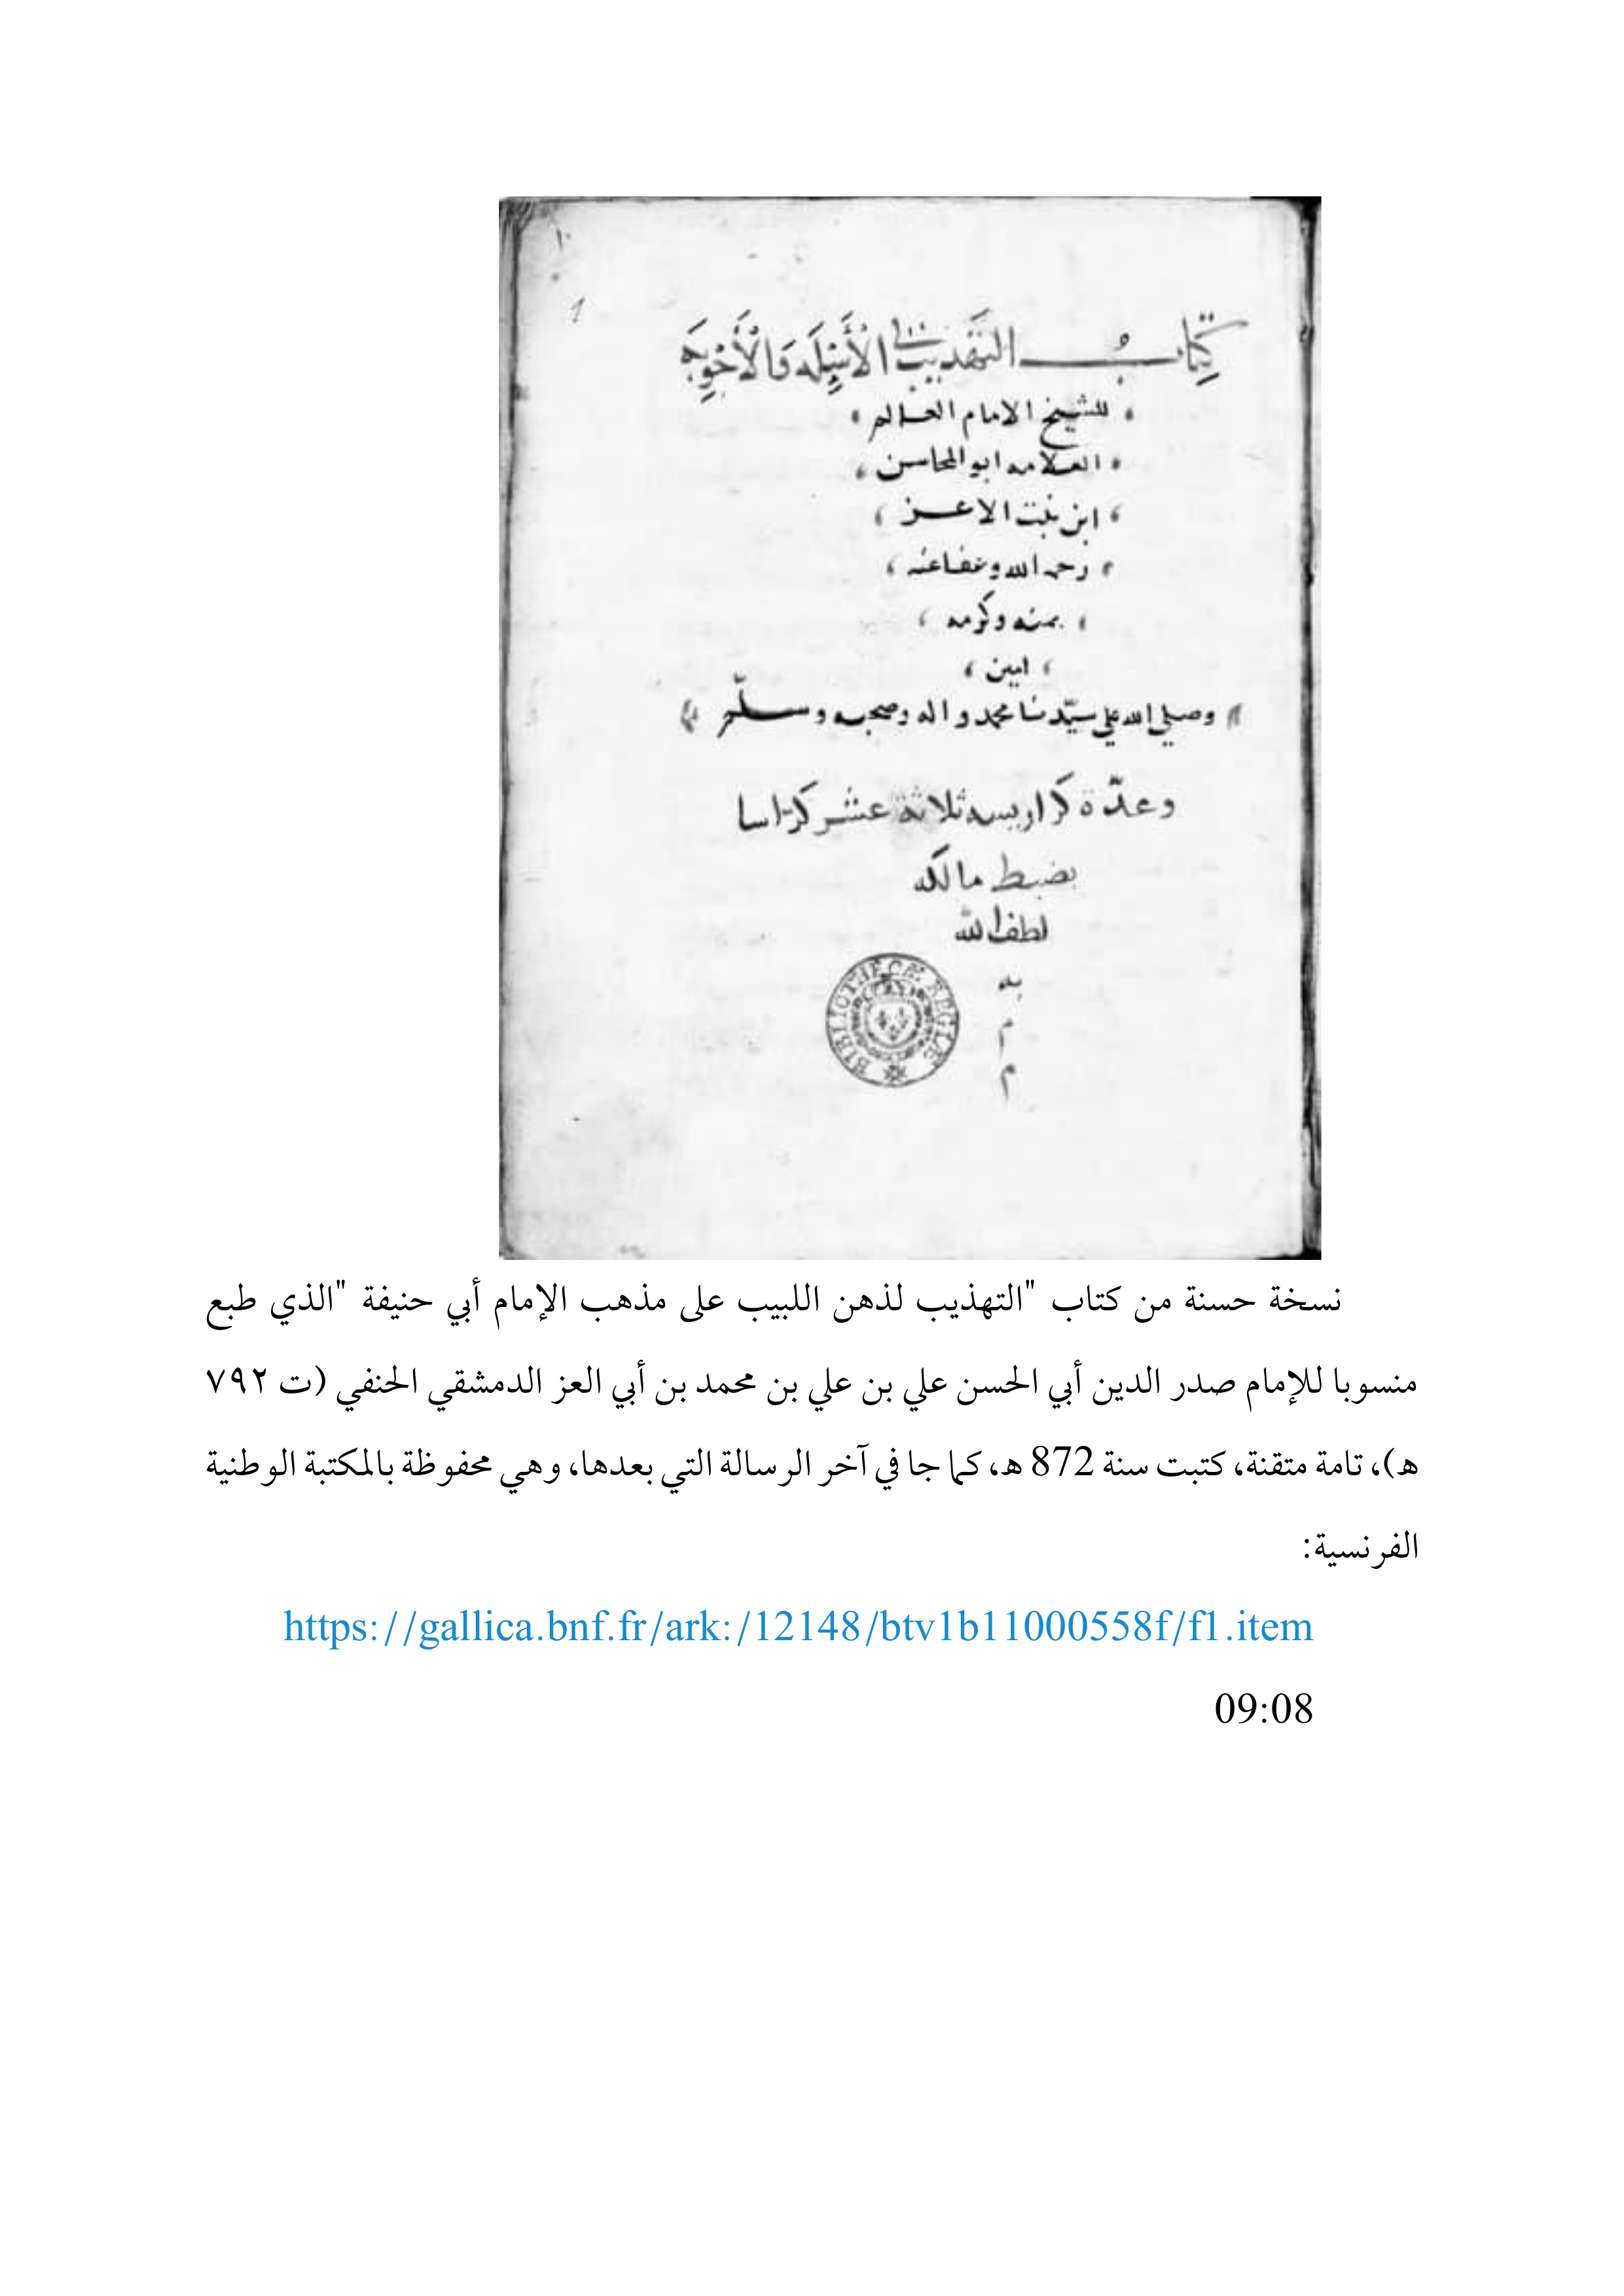 ١٠
1
كِتَابُ التَهْذيب في الأَسْئِلَه وَالأَجْوِبَه
للشيخ الامام العالم
العلامه ابو المحاسن
ابن بنت الاعز
رحمه الله وعفا عنه
بمنه وكرمه
امين
وصلي الله علي سيّدنا محمد واله وصحبه وسلّم
وعدّة كراريسه ثلاثة عشر كراسا
بضبط مالكه
لطف الله
به
م
م
BIBLIOTHECÆ REGIÆ
نسخة حسنة من كتاب "التهذيب لذهن اللبيب على مذهب الإمام أبي حنيفة "الذي طبع
منسوبا للإمام صدر الدين أبي الحسن علي بن علي بن محمد بن أبي العز الدمشقي الحنفي (ت ٧٩٢
ه)، تامة متقنة، كتبت سنة 872 ه، كما جا في آخر الرسالة التي بعدها، وهي محفوظة بالمكتبة الوطنية
الفرنسية:
https://gallica.bnf.fr/ark:/12148/btv1b11000558f/f1.item
09:08